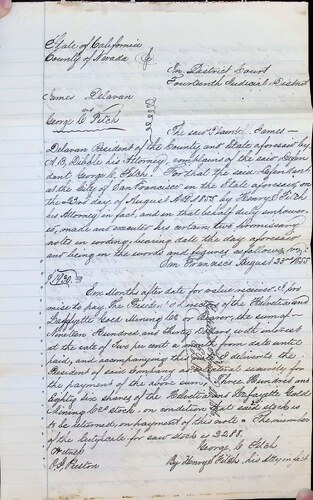 State of California
County of Nevada
In District Court
Fourteenth Judicial District
James Delavan
vs
George C Fitch
The said Plaintiff James
Delavan Resident of the County and State aforesaid by
A.B. Dibble his Attorney, complains of the said Defen
dant George C. Fitch. For that the said Defendant
at the City of San Francisco in the State aforesaid, on
the 23rd day of August A.D. 1855 by Henry S Fitch
his Attorney in fact, and in that behalf duly empower
ed, made and executed his certain two promissory
notes in writing, bearing date the day aforesaid
and being in the words and figures as follows, viz;
San Francisco August 23rd 1855
$1930.
Six Months after date for value received, I pro
mise to pay the President of the Helvetia and
Lafayette Gold Mining Co or Bearer, the sum of
Nineteen Hundred and thirty Dollars, with interest
at the rate of two per cent a month from date until
paid, and accompanying this I delivered to the
President of said Company as collateral security for
the payment of the above sum, Three Hundred and
Eighty six shares of the Helvetia and Lafayette Gold
Mining Co's stock, on condition that said stock is
to be returned, on payment of this note. The number
of the Certificate for said stock is 3288.
Witness
George C Fitch
Preston
By Henry S Fitch, his Atty in fact